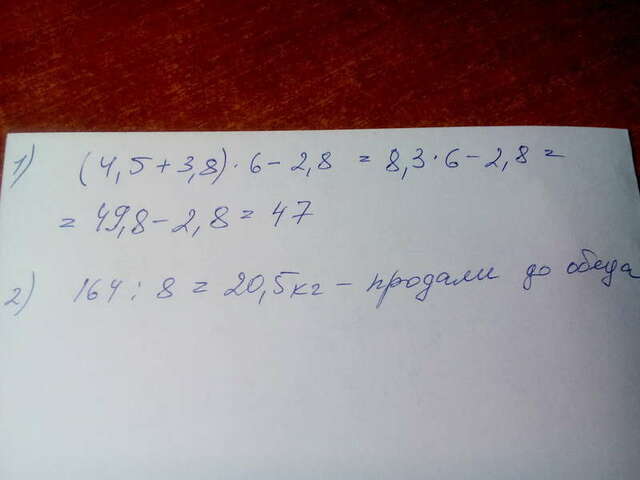 1) (4,5+3,8)·6-2,8 = 8,3·6-2,8=
= 49,8-2,8=47
2) 164:8=20,5кг - продали до обеда